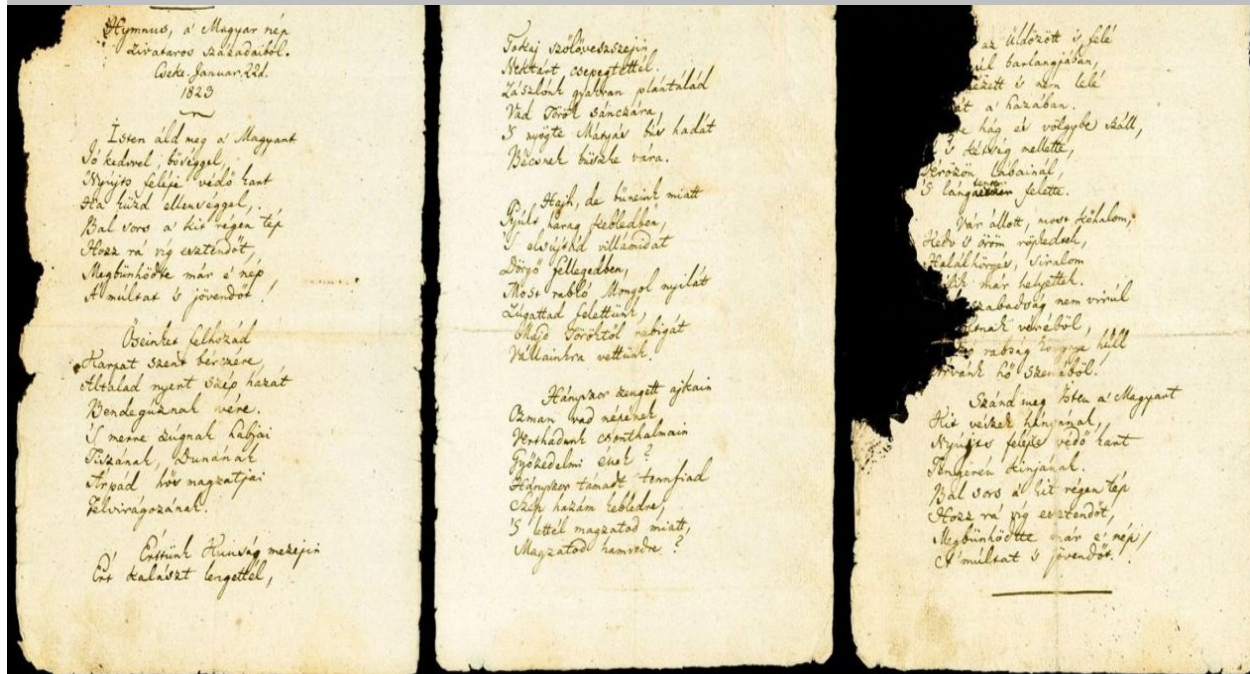 Hymnus, a' Magyar nép
zivataros századaiból.
Cseke. Januar. 22d.
1823
Isten áld meg a' Magyart
Jó kedvvel, bőséggel,
Nyújts feléje védő kart
Ha küzd ellenséggel,
Bal sors a' kit régen tép
Hozz rá víg esztendőt,
Megbünhödte már e' nép
A' múltat 's jövendőt!
Őseinket felhozád
Kárpát szent bérczére,
Általad nyert szép hazát
Bendegúznak vére.
'S merre zúgnak habjai
Tiszának, Dunának
Árpád hős magzatjai
Felvirágozának.
Értünk Kunság mezejin
Ért kalászt lengettél,
Tokaj szőlővesszejin
Nektárt csepegtettél.
Zászlónk gyakran plántálád
Vad Török sánczára,
'S nyögte Mátyás bús hadát
Bécsnek büszke vára.
Hajh, de bűneink miatt
Gyúlt harag kebledben,
'S elsújtád villámidat
Dörgő fellegedben,
Most rabló Mongol nyilát
Zúgattad felettünk,
Majd Töröktől rabigát
Vállainkra vettünk.
Hányszor zengett ajkain
Ozman vad népének
Vert hadunk csonthalmain
Győzedelmi ének?
Hányszor támadt tennfiad
Szép hazám kebledre,
'S lettél magzatod miatt,
Magzatod hamvedre?
az üldözött 's felé
barlangjában,
's nem lelé
a' hazában.
hág és völgybe száll,
's kétség mellette,
Vérözön lábainál,
'S láng felette.
Vár állott, most kőhalom,
Kedv 's öröm röpkedtek,
Halálhörgés, siralom
már helyettek.
szabadság nem virúl
véréből,
rabság könnye hull
hő szeméből.
Szánd meg Isten a' Magyart
Kit vészek hányának,
Nyújts feléje védő kart
Tengerén kínjának.
Bal sors a' kit régen tép
Hozz rá víg esztendőt,
Megbünhödte már e' nép
A' múltat 's jövendőt.